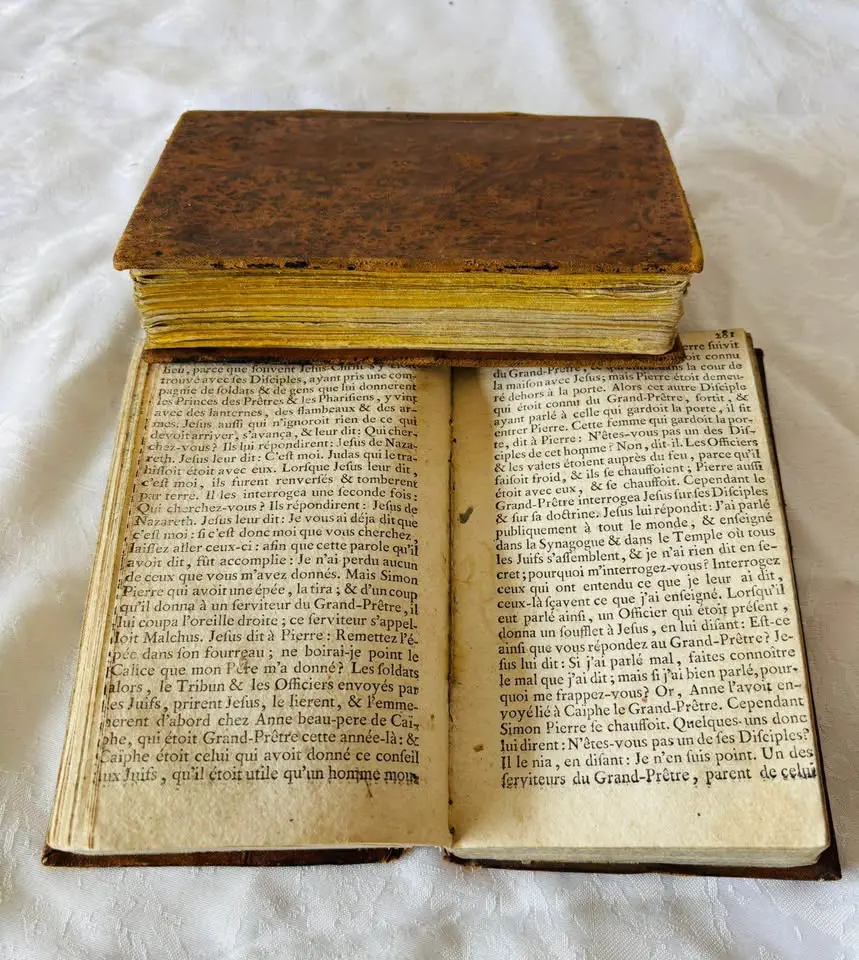 lieu, parce que souvent Jesus-Christ s'y étoit
trouvé avec ſes Diſciples, ayant pris une com-
pagnie de ſoldats & de gens que lui donnerent
les Princes des Prêtres & les Phariſiens, y vint
avec des lanternes, des flambeaux & des ar-
mes. Jeſus auſſi qui n'ignoroit rien de ce qui
devoit arriver, s'avança, & leur dit: Qui cher-
chez-vous? Ils lui répondirent: Jeſus de Naza-
reth. Jeſus leur dit: C'eſt moi. Judas qui le tra-
hiſſoit étoit avec eux. Lorſque Jeſus leur dit,
c'eſt moi, ils furent renverſés & tomberent
par terre. Il les interrogea une ſeconde fois:
Qui cherchez-vous? Ils répondirent: Jeſus de
Nazareth. Jeſus leur dit: Je vous ai déja dit que
c'eſt moi: ſi c'eſt donc moi que vous cherchez,
laiſſez aller ceux-ci: afin que cette parole qu'il
avoit dit, fût accomplie: Je n'ai perdu aucun
de ceux que vous m'avez donnés. Mais Simon
Pierre qui avoit une épée, la tira; & d'un coup
qu'il donna à un ſerviteur du Grand-Prêtre, il
lui coupa l'oreille droite; ce ſerviteur s'appel-
loit Malchus. Jeſus dit à Pierre: Remettez l'é-
pée dans ſon fourreau; ne boirai-je point le
Calice que mon Pere m'a donné? Les ſoldats
alors, le Tribun & les Officiers envoyés par
les Juifs, prirent Jeſus, le lierent, & l'emme-
nerent d'abord chez Anne beau-pere de Caï-
phe, qui étoit Grand-Prêtre cette année-là: &
Caïphe étoit celui qui avoit donné ce conſeil
aux Juifs, qu'il étoit utile qu'un homme mou-
281
erre ſuivit
oit connu
du Grand-Prêtre, & dans la cour de
la maiſon avec Jeſus; mais Pierre étoit demeu-
ré dehors à la porte. Alors cet autre Diſciple
qui étoit connu du Grand-Prêtre, ſortit, &
ayant parlé à celle qui gardoit la porte, il fit
entrer Pierre. Cette femme qui gardoit la por-
te, dit à Pierre: N'êtes-vous pas un des Diſ-
ciples de cet homme? Non, dit-il. Les Officiers
& les valets étoient auprès du feu, parce qu'il
faiſoit froid, & ils ſe chauffoient; Pierre auſſi
étoit avec eux, & ſe chauffoit. Cependant le
Grand-Prêtre interrogea Jeſus ſur ſes Diſciples
& ſur ſa doctrine. Jeſus lui répondit: J'ai parlé
publiquement à tout le monde, & enſeigné
dans la Synagogue & dans le Temple où tous
les Juifs s'aſſemblent, & je n'ai rien dit en ſe-
cret; pourquoi m'interrogez-vous? Interrogez
ceux qui ont entendu ce que je leur ai dit,
ceux-là ſçavent ce que j'ai enſeigné. Lorſqu'il
eut parlé ainſi, un Officier qui étoit préſent,
donna un ſoufflet à Jeſus, en lui diſant: Eſt-ce
ainſi que vous répondez au Grand-Prêtre? Je-
ſus lui dit: Si j'ai parlé mal, faites connoître
le mal que j'ai dit; mais ſi j'ai bien parlé, pour-
quoi me frappez-vous? Or, Anne l'avoit en-
voyé lié à Caïphe le Grand-Prêtre. Cependant
Simon Pierre ſe chauffoit. Quelques-uns donc
lui dirent: N'êtes-vous pas un de ſes Diſciples?
Il le nia, en diſant: Je n'en ſuis point. Un des
ſerviteurs du Grand-Prêtre, parent de celui